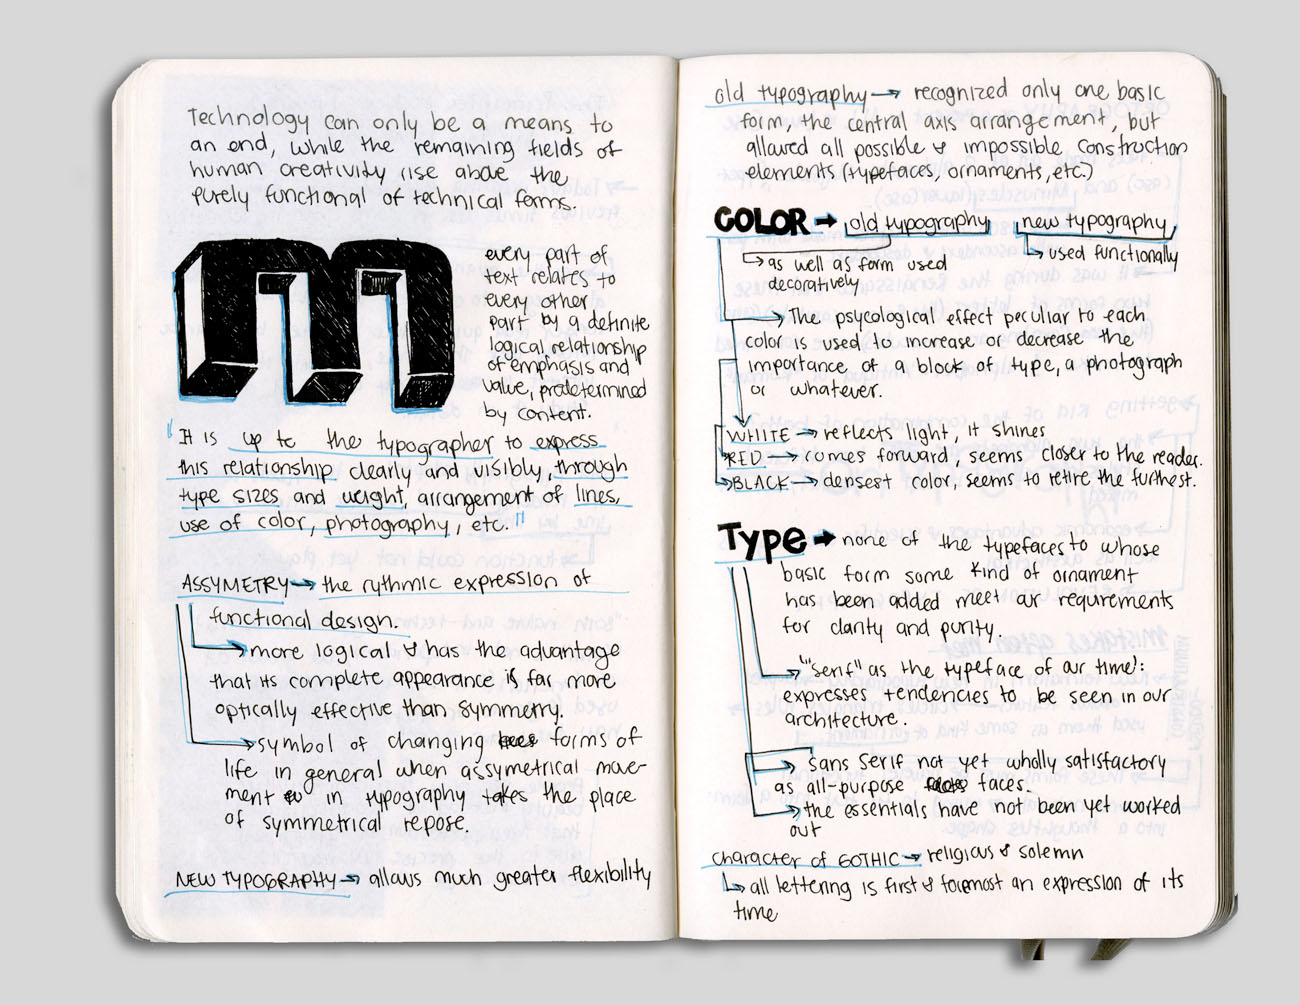 Technology can only be a means to
an end, while the remaining fields of
human creativity rise above the
purely functional of technical forms.
m
every part of
text relates to
every other
part by a definite
logical relationship
of emphasis and
value, predetermined
by content.
"It is up to the typographer to express
this relationship clearly and visibly, through
type sizes and weight, arrangement of lines,
use of color, photography, etc."
ASSYMETRY→ the rythmic expression of
functional design.
→more logical & has the advantage
that its complete appearance is far more
optically effective than symmetry.
→symbol of changing forms of
life in general when assymetrical move-
ment in typography takes the place
of symmetrical repose.
NEW TYPOGRAPHY→ allows much greater flexibility
old typography→ recognized only one basic
form, the central axis arrangement, but
allowed all possible & impossible construction
elements (typefaces, ornaments, etc.)
COLOR → old typography new typography
→as well as form used
decoratively
→used functionally
→The psycological effect peculiar to each
color is used to increase or decrease the
importance of a block of type, a photograph
or whatever.
WHITE → reflects light, it shines
RED → comes forward, seems closer to the reader.
→BLACK → densest color, seems to retire the furthest.
Type → none of the typefaces to whose
basic form some kind of ornament
has been added meet our requirements
for clarity and purity.
→"Serif" as the typeface of our time:
expresses tendencies to be seen in our
architecture.
→ Sans Serif not yet wholly satisfactory
as all-purpose faces.
→the essentials have not been yet worked
out
character of GOTHIC → religious & solemn
→all lettering is first & foremost an expression of its
time